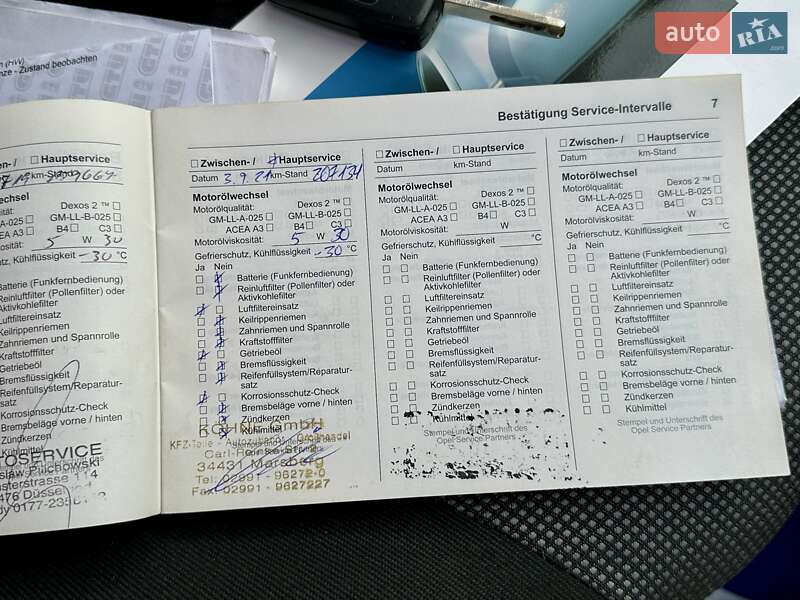 auto RIA .com
(HW)
nze - Zustand beobachten
GTÜ
Bestätigung Service-Intervalle 7
en-/ Hauptservice
km-Stand
wechsel
alität: Dexos 2 ™
-LL-A-025 GM-LL-B-025
ACEA A3 B4 C3
kosität: 5 W 30
chutz, Kühlflüssigkeit -30 °C
Nein
Batterie (Funkfernbedienung)
Reinluftfilter (Pollenfilter) oder
Aktivkohlefilter
Luftfiltereinsatz
Keilrippenriemen
Zahnriemen und Spannrolle
Kraftstofffilter
Getriebeöl
Bremsflüssigkeit
Reifenfüllsystem/Reparatur-
satz
Korrosionsschutz-Check
Bremsbeläge vorne / hinten
Zündkerzen
Kühlmittel
TOSERVICE
Pilichowski
sterstrasse 114
476 Düssel
Zwischen-/ Hauptservice
Datum 3.9.21 km-Stand 207134
Motorölwechsel
Motorölqualität: Dexos 2 ™
GM-LL-A-025 GM-LL-B-025
ACEA A3 B4 C3
Motorölviskosität: 5 W 30
Gefrierschutz, Kühlflüssigkeit -30 °C
Ja Nein
Batterie (Funkfernbedienung)
Reinluftfilter (Pollenfilter) oder
Aktivkohlefilter
Luftfiltereinsatz
Keilrippenriemen
Zahnriemen und Spannrolle
Kraftstofffilter
Getriebeöl
Bremsflüssigkeit
Reifenfüllsystem/Reparatur-
satz
Korrosionsschutz-Check
Bremsbeläge vorne / hinten
Zündkerzen
Kühlmittel
GmbH
KFZ-Teile - Autozubehör - Großhandel
34431 Marsberg
Tel. 02991 - 96272-0
Fax 02991 - 9627227
Zwischen-/ Hauptservice
Datum km-Stand
Motorölwechsel
Motorölqualität: Dexos 2 ™
GM-LL-A-025 GM-LL-B-025
ACEA A3 B4 C3
Motorölviskosität: W
Gefrierschutz, Kühlflüssigkeit °C
Ja Nein
Batterie (Funkfernbedienung)
Reinluftfilter (Pollenfilter) oder
Aktivkohlefilter
Luftfiltereinsatz
Keilrippenriemen
Zahnriemen und Spannrolle
Kraftstofffilter
Getriebeöl
Bremsflüssigkeit
Reifenfüllsystem/Reparatur-
satz
Korrosionsschutz-Check
Bremsbeläge vorne / hinten
Zündkerzen
Kühlmittel
Stempel und Unterschrift des
Opel Service Partners
Zwischen-/ Hauptservice
Datum km-Stand
Motorölwechsel
Motorölqualität: Dexos 2 ™
GM-LL-A-025 GM-LL-B-025
ACEA A3 B4 C3
Motorölviskosität: W
Gefrierschutz, Kühlflüssigkeit °C
Ja Nein
Batterie (Funkfernbedienung)
Reinluftfilter (Pollenfilter) oder
Aktivkohlefilter
Luftfiltereinsatz
Keilrippenriemen
Zahnriemen und Spannrolle
Kraftstofffilter
Getriebeöl
Bremsflüssigkeit
Reifenfüllsystem/Reparatur-
satz
Korrosionsschutz-Check
Bremsbeläge vorne / hinten
Zündkerzen
Kühlmittel
Stempel und Unterschrift des
Opel Service Partners